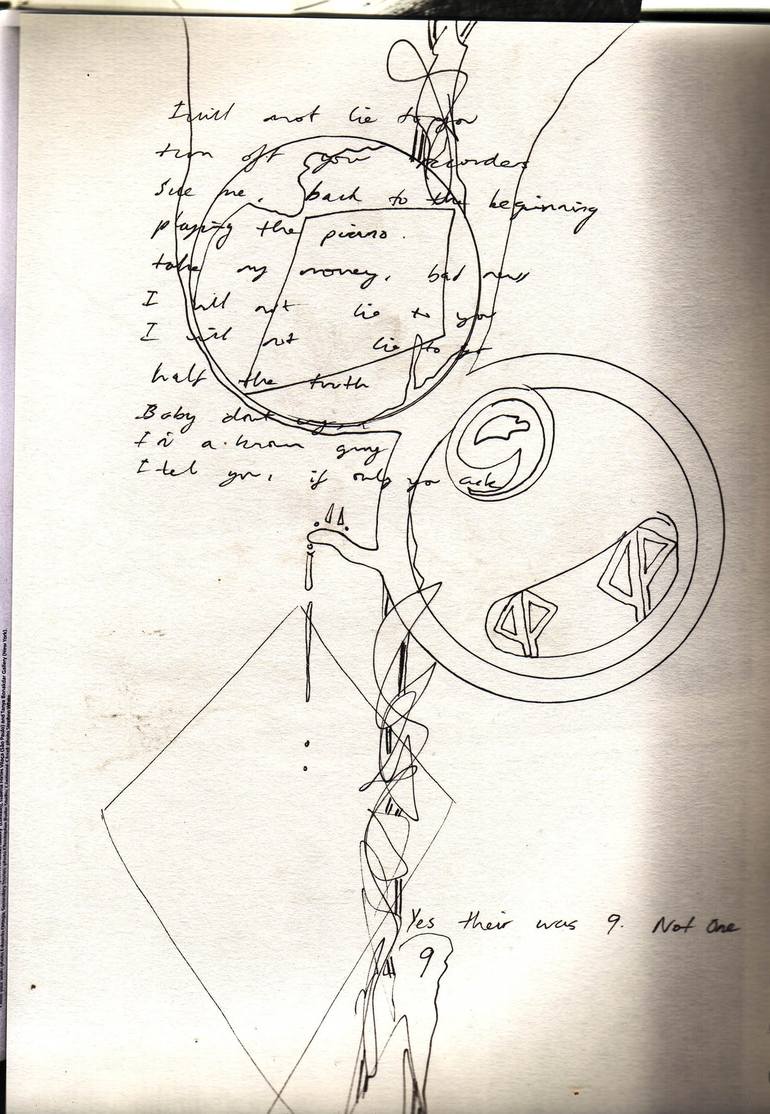 I will not lie to you
turn off your recorders
Sue me, back to the beginning
playing the piano.
take my money, bad news
I will not lie to you
I will not lie to you
half the truth
Baby dont
I'm a known guy
I tell you, if only you ask
Yes their was 9. Not one
9